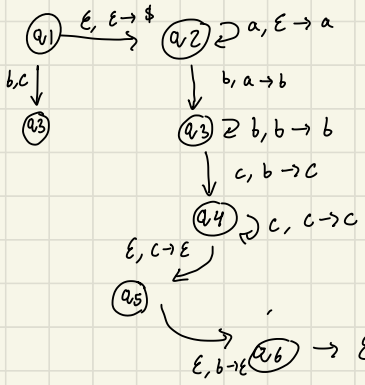 q1
ε, ε → $
q2
a, ε → a
b,c
b, a → b
q3
q3
b, b → b
c, b → c
q4
c, c → c
ε, c → ε
q5
ε, b → ε
q6
→ ε